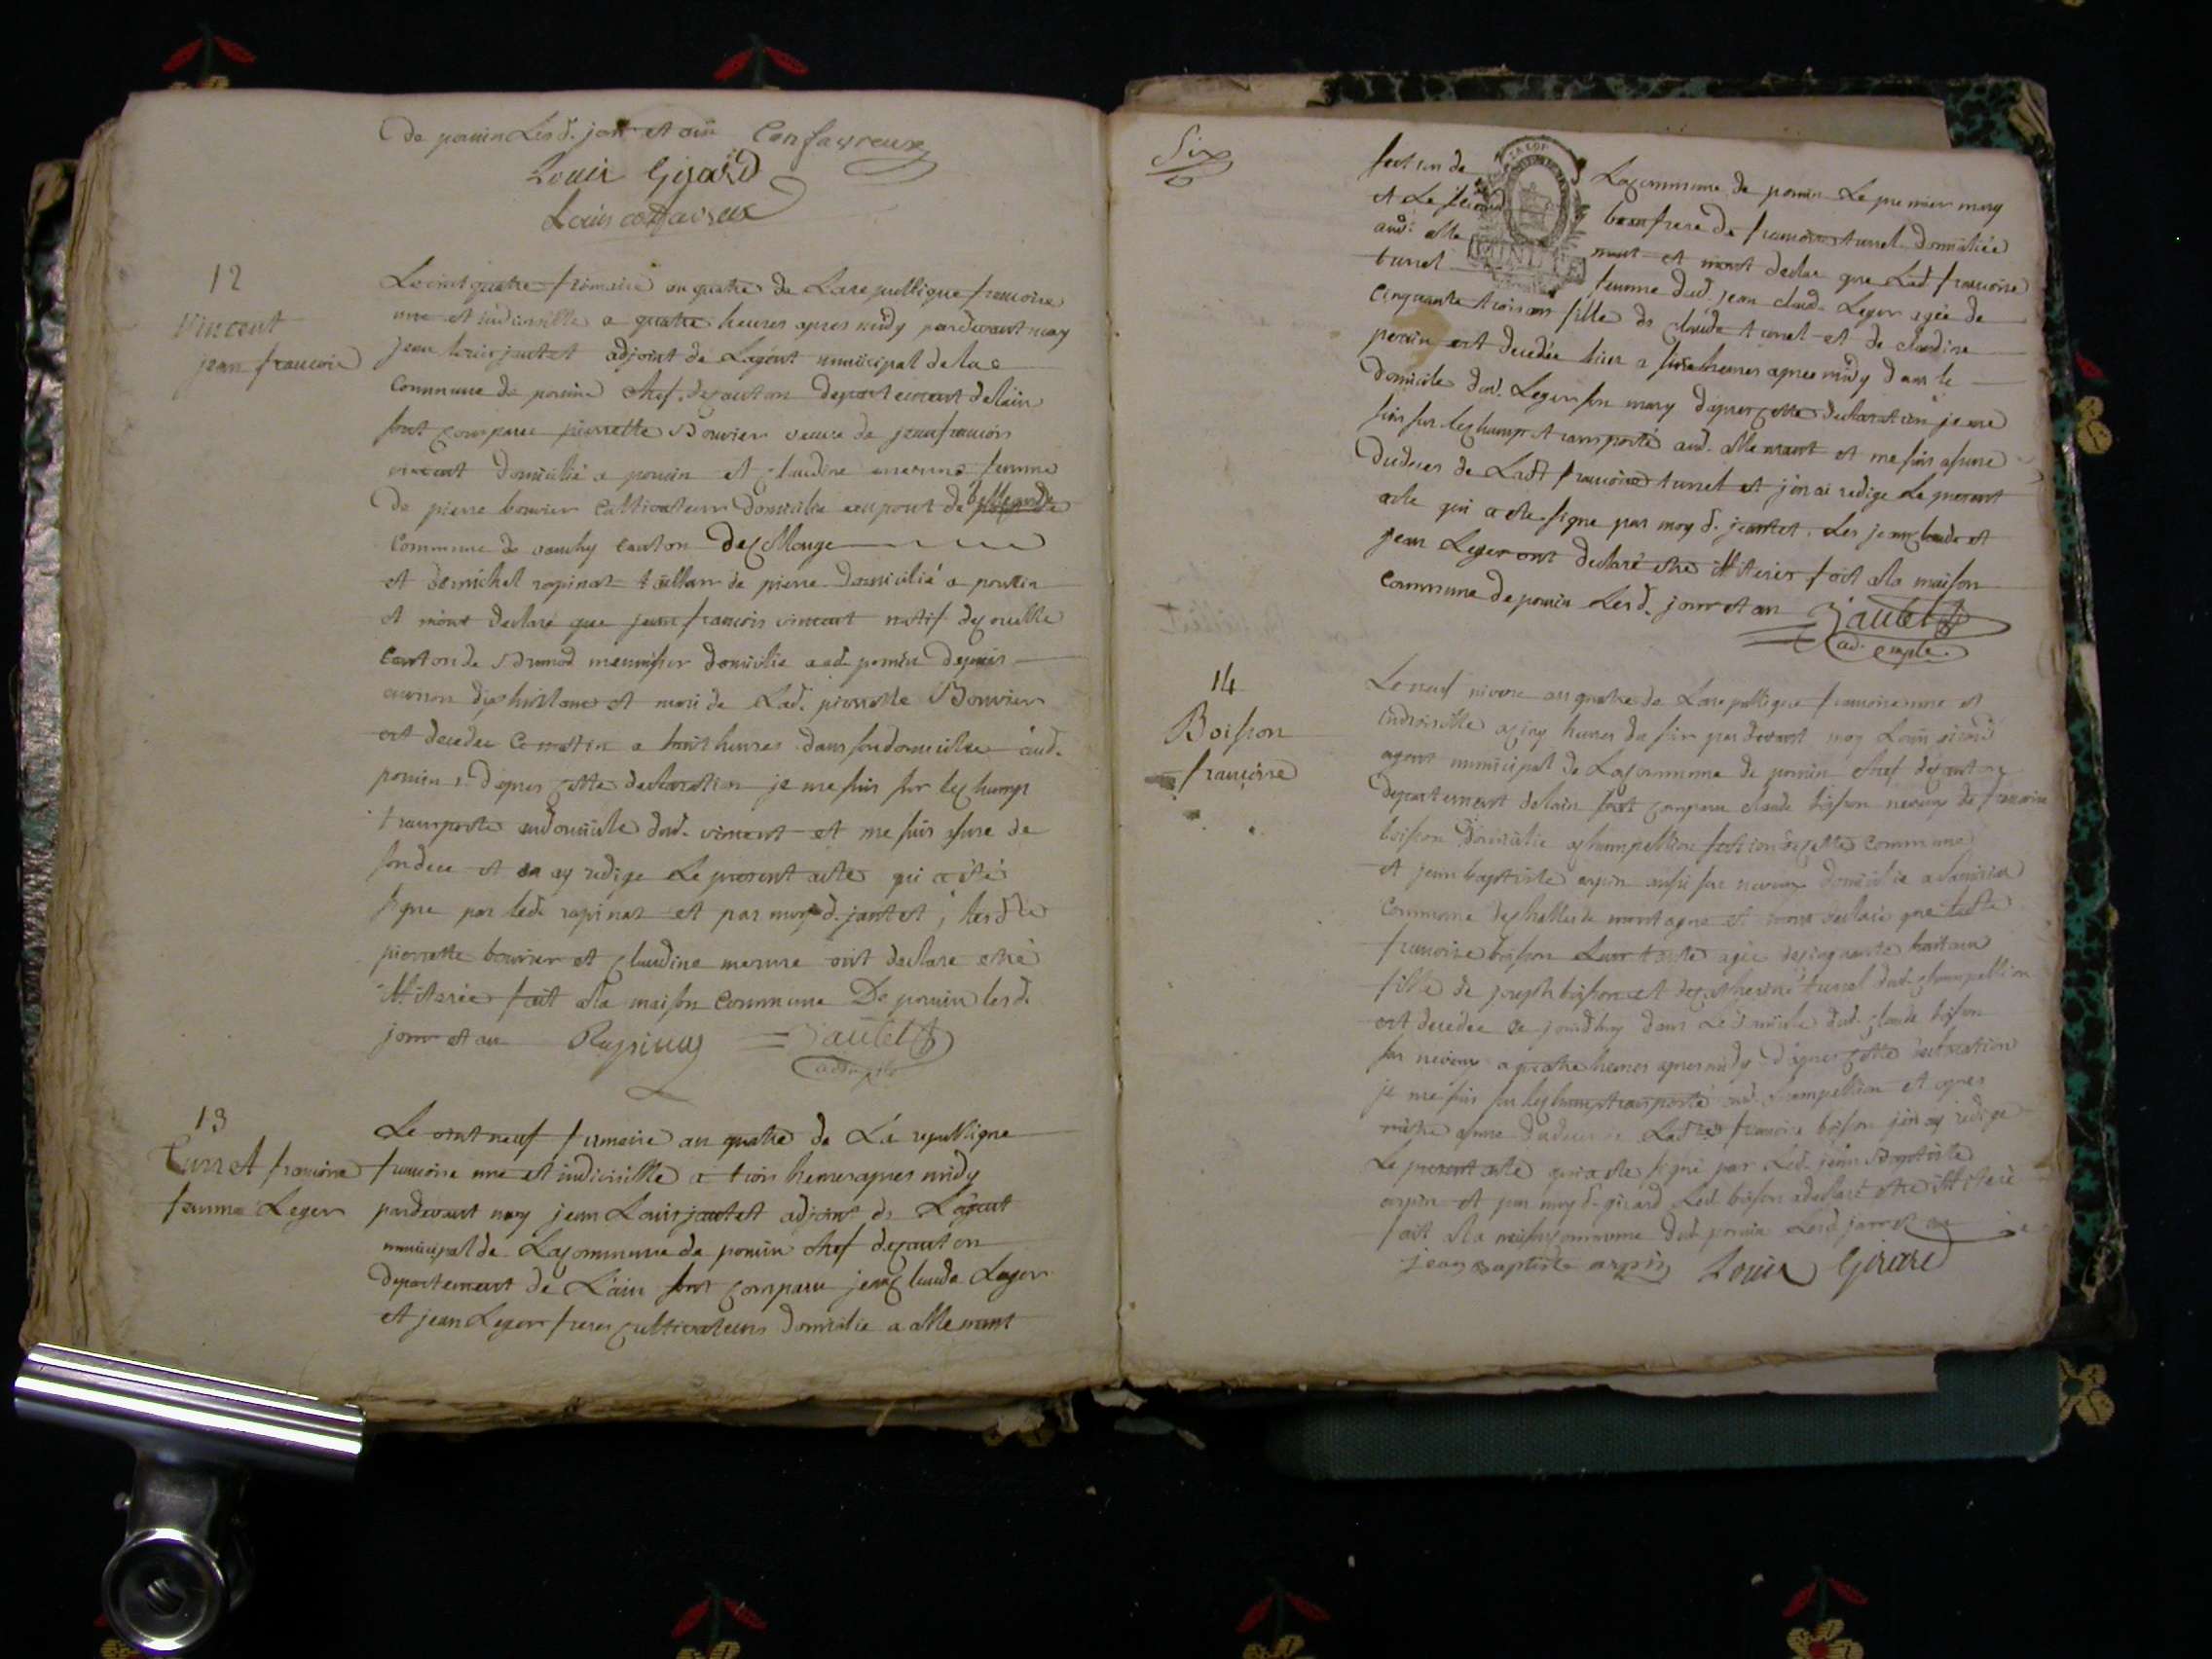 de poncin Lesd. jour et an Confavreux
Louis Girard
Louis confavreux
12
Vincent
jean francois
Le vint quatre frimaire an quatre de La republique francoise
une et indivisible a quatre heures apres midy pardevant moy
jean louis jantet adjoint de Lagent municipal de la
Commune de poncin chef de canton departement de lain
sont comparu pierrette Bouvier veuve de jean francois
vincent domicilié a poncin et claudine mermé femme
de pierre bouvier Cultivateur domicilie au pont de bellegarde
Commune de vouchy canton de
et de michel rapinat tallieur de pierre domicilié a poncin
et mont declaré que jean francois vincent natif de
Canton de menuisier domicilie aud. poncin depuis
environ dix huit ans et mari de Lad. pierrette Bouvier
est decedee ce matin a huit heures dans son domicilie aud.
poncin, d'apres cette declaration je me suis sur le champ
transporte au domicile dud. vincent et me suis asure de
son deces et en ay redige Le present acte qui a été
signe par led. rapinat et par moy d. jantet, lesdtes
pierrette bouvier et claudine mermé ont declare etre
illiterée fait a la maison Commune De poncin lesd.
jour et an Rapinat Jantet
adj
13
Turret francoise
femme Leger
Le vint neuf frimaire an quatre de La republique
francoise une et indivisible a trois heures apres midy
pardevant moy jean Louis jantet adjoint de Lagent
municipal de La commune de poncin chef de canton
departement de Lain sont comparu jean claude Leger
et jean Leger freres cultivateurs domicilie a allement
Six
section de La commune de poncin Le premier mary
et Le second beau frere de francoise turrel domicilée
aud. alle mant et mont declare que Lad. francoise
turrel femme dud. jean claude Leger agée de
Cinquante trois ans fille de claude turrel et de claudine
perrin est decedée hier a six heures apres midy dans le
domicile dud. Leger son mary dapres cette declaration je me
suis sur le champ transporte aud. allemant et me suis asure
du deces de Ladt francoise turrel et jen ai redige Le present
acte qui a ete signe par moy d. jantet, Les jean claude et
jean Leger ont declaré etre illiteres fait a la maison
commune de poncin Lesd. jour et an Jantet
ad.
14
Boisson
francoise
Le neuf nivose an quatre de La republique francoise une et
indivisible a cinq heures du soir par devant moy Louis girard
agent municipal de La commune de poncin chef de canton
departement delain sont comparu claude boisson neveux de francoise
boisson domicilie a champellion section de cette commune
et jean baptiste arpin aussi son neveux domicilie a
commune de challes la montagne et mont declaré que
francoise boisson Leur tante agée de cinquante huit ans
fille de joseph boisson et de catherine turrel dud. champellion
est decedée ce jourdhuy dans Le domicile dud. claude boisson
son neveux a quatre heures apres midy dapres cette declaration
je me suis sur le champ transporté aud. champellion et apres
metre asure du deces de Ladte francoise boisson jen ay redige
Le present acte qui a ete signé par Led. jean Baptiste
arpin et par moy d. girard Led. boisson a declaré etre illiteré
fait a la maison commune dud. poncin Lesd. jour et an
jean baptiste arpin Louis Girard